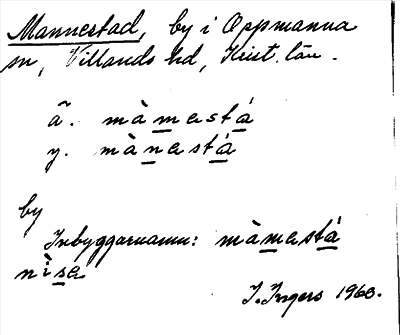 Mannestad, by i Oppmanna
sn, Villands hd, Krist. län.
ä. mànestá
y. mànestá
by
Inbyggarnamn: mànestá
nìse
I. Ingers 1960.